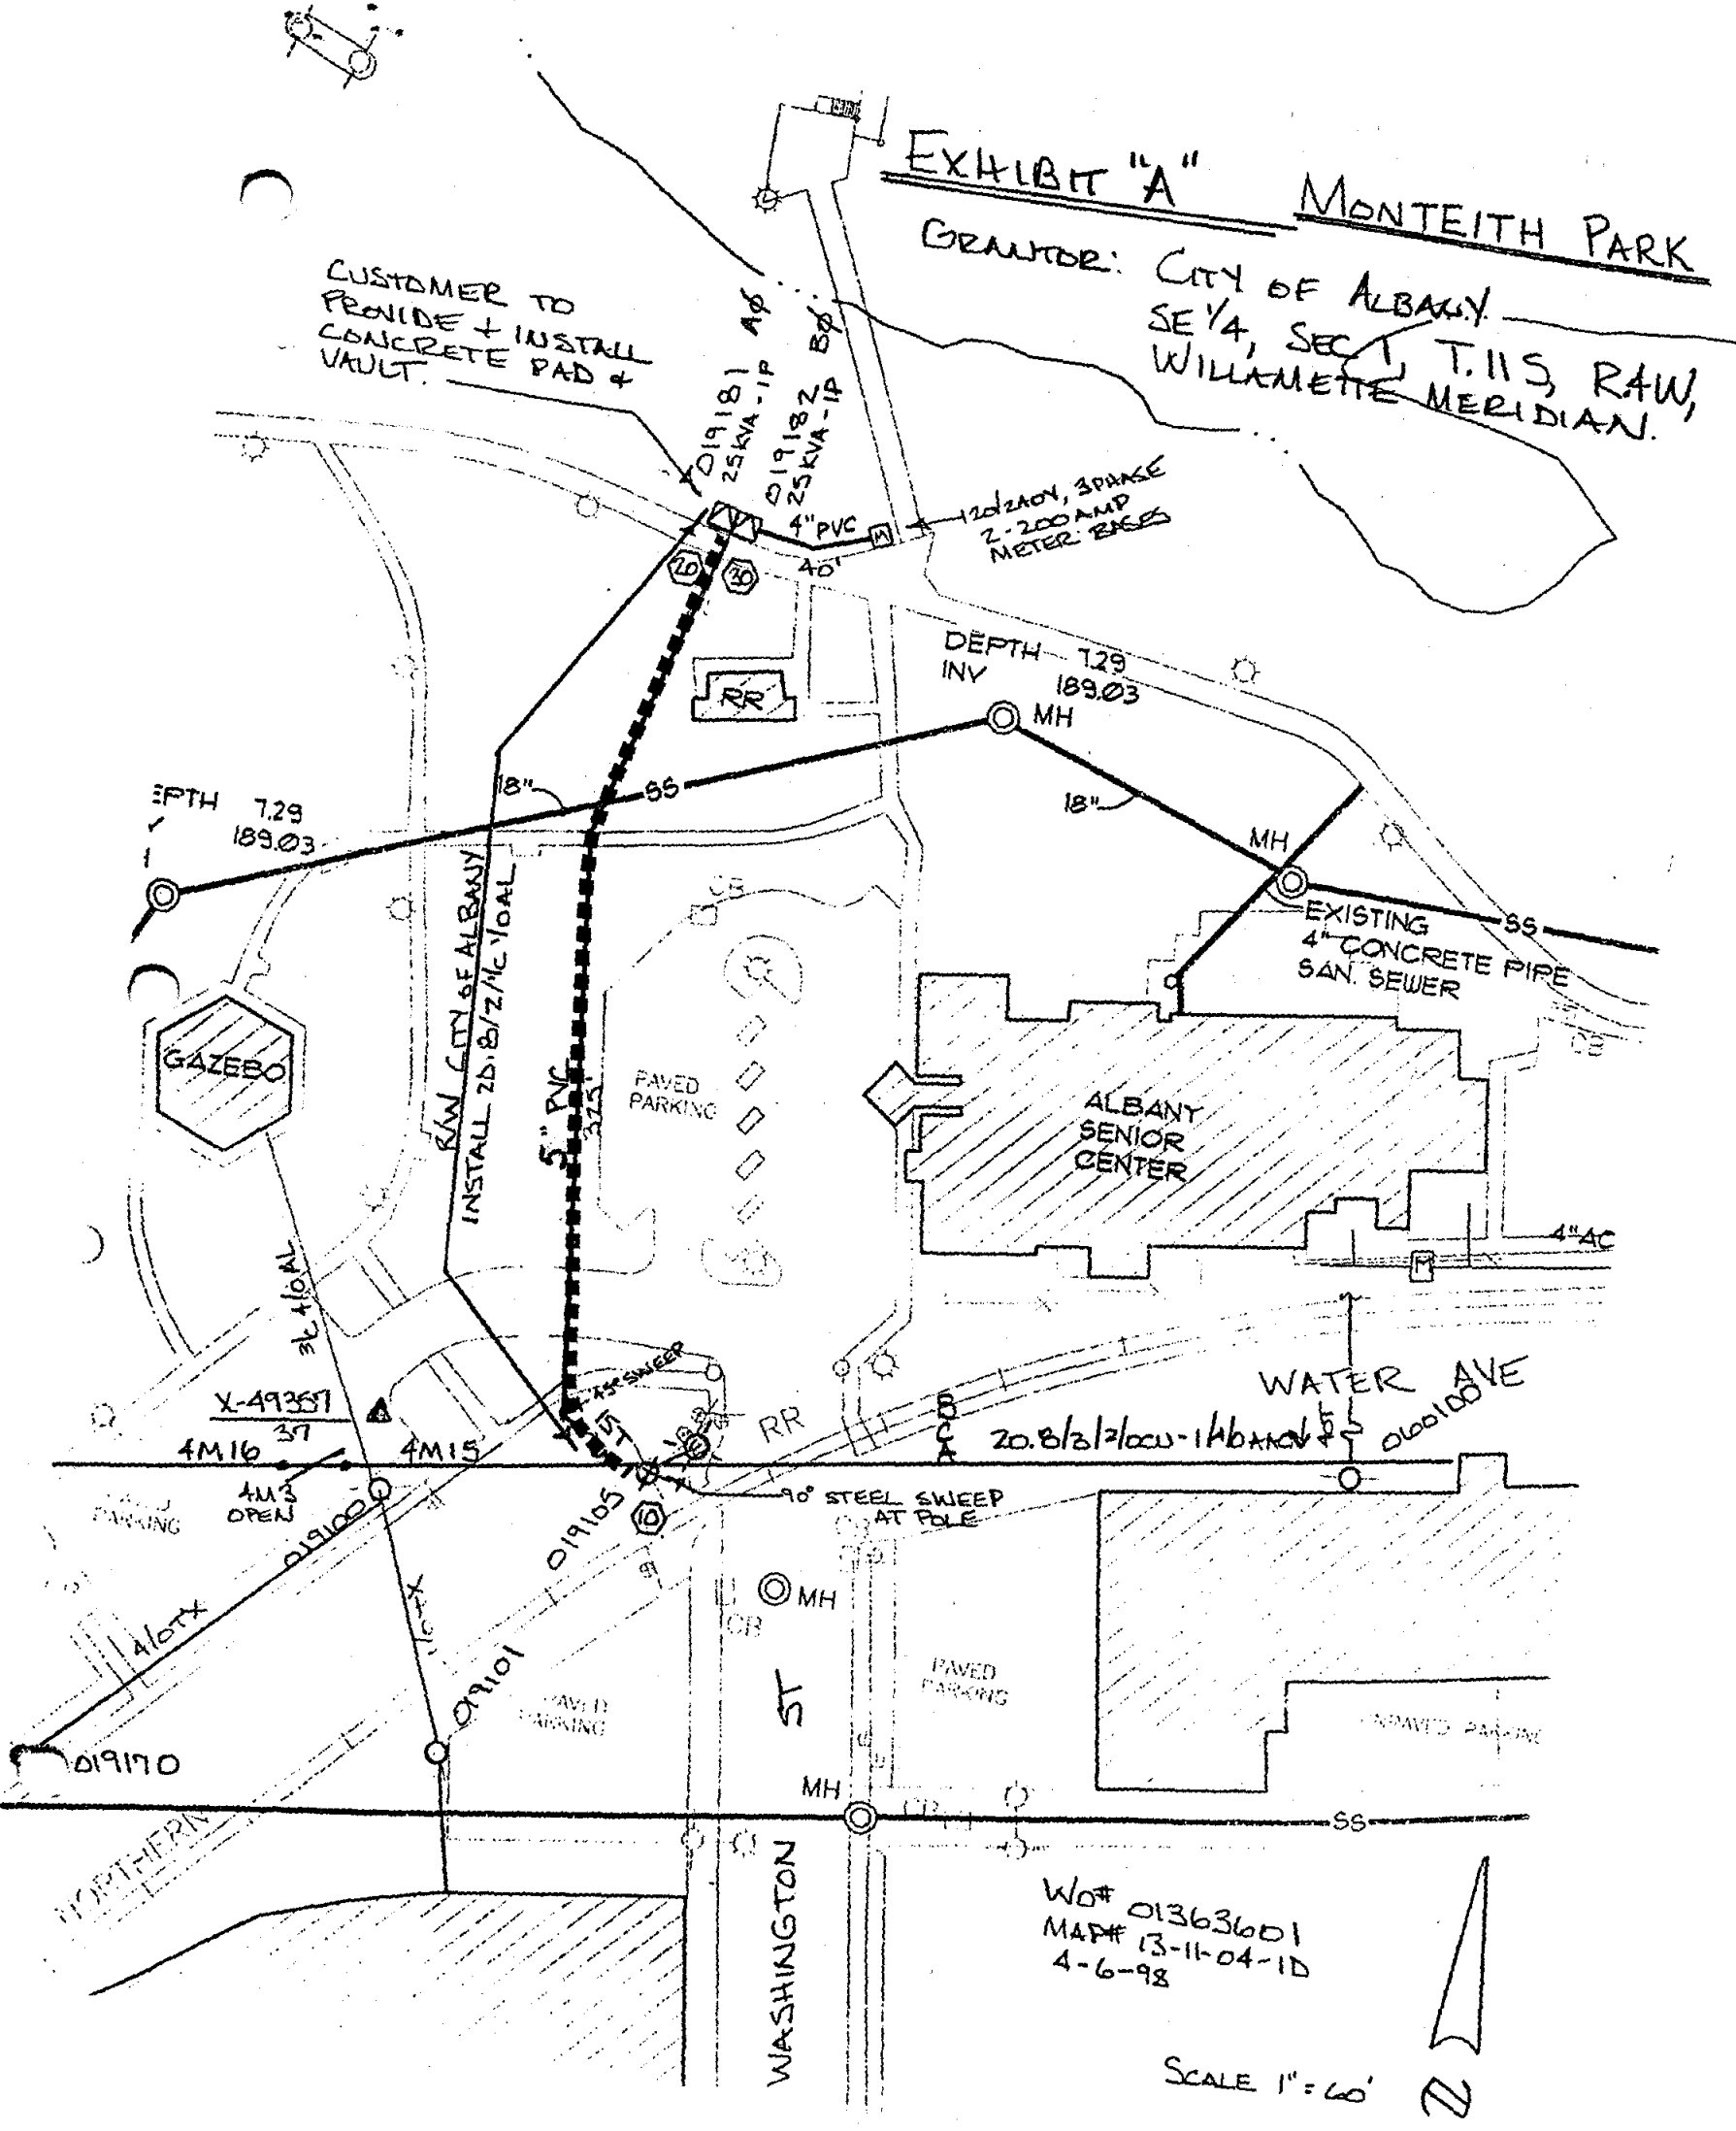 EXHIBIT "A" MONTEITH PARK
GRANTOR: CITY OF ALBANY
SE 1/4, SEC 1, T.11S, R4W,
WILLAMETTE MERIDIAN.
CUSTOMER TO
PROVIDE + INSTALL
CONCRETE PAD &
VAULT.
019181 AØ
25KVA-1P
019182 BØ
25KVA-1P
4" PVC
40'
M
120/240V, 3PHASE
2-200AMP
METER BASES
20
30
RR
DEPTH 7.29
INV 189.03
MH
18"
SS
18"
MH
EPTH 7.29
189.03
EXISTING
4" CONCRETE PIPE
SAN. SEWER
SS
CB
CB
GAZEBO
R/W CITY OF ALBANY
INSTALL 20.8/2/1/C 1/0AL
5" PVC
375'
PAVED
PARKING
ALBANY
SENIOR
CENTER
4"AC
M
45° SWEEP
15'
X-49357
37
4M16
4M15
4M3
OPEN
RR
B
C
A
WATER AVE
060100
90° STEEL SWEEP
AT POLE
019100
019105
10
PARKING
4/0TX
019101
019170
MH
CB
ST
PAVED
PARKING
PAVED
PARKING
UNPAVED PARKING
MH
CB
SS
NORTHERN
WASHINGTON
WO# 01363601
MAP# 13-11-04-1D
4-6-98
SCALE 1"=60'
N